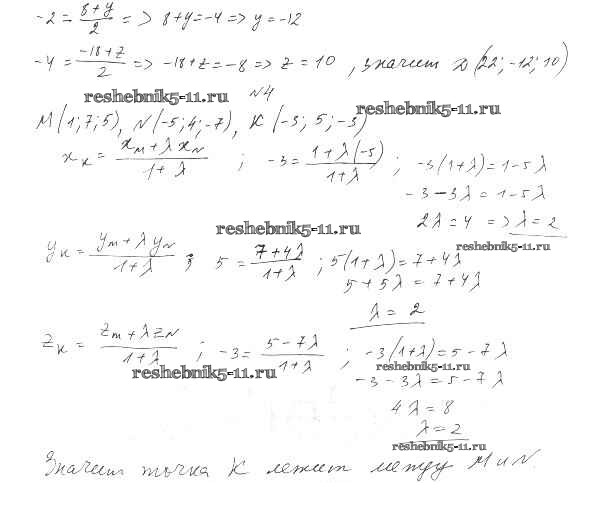 -2 = (8+y)/2 => 8+y=-4 => y=-12
-4 = (-18+z)/2 => -18+z=-8 => z=10, значит D(22; -12; 10)
reshebnik5-11.ru
№4
reshebnik5-11.ru
M(1; 7; 5), N(-5; 4; -7), K(-3; 5; -3)
x_K = (x_M + λ x_N)/(1+λ) ; -3 = (1+λ(-5))/(1+λ) ; -3(1+λ)=1-5λ
-3-3λ=1-5λ
2λ=4 => λ=2
reshebnik5-11.ru
reshebnik5-11.ru
y_K = (y_M + λ y_N)/(1+λ) ; 5 = (7+4λ)/(1+λ) ; 5(1+λ)=7+4λ
5+5λ=7+4λ
λ=2
z_K = (z_M + λ z_N)/(1+λ) ; -3 = (5-7λ)/(1+λ) ; -3(1+λ)=5-7λ
reshebnik5-11.ru
reshebnik5-11.ru
-3-3λ=5-7λ
4λ=8
λ=2
reshebnik5-11.ru
Значит точка K лежит между M и N.